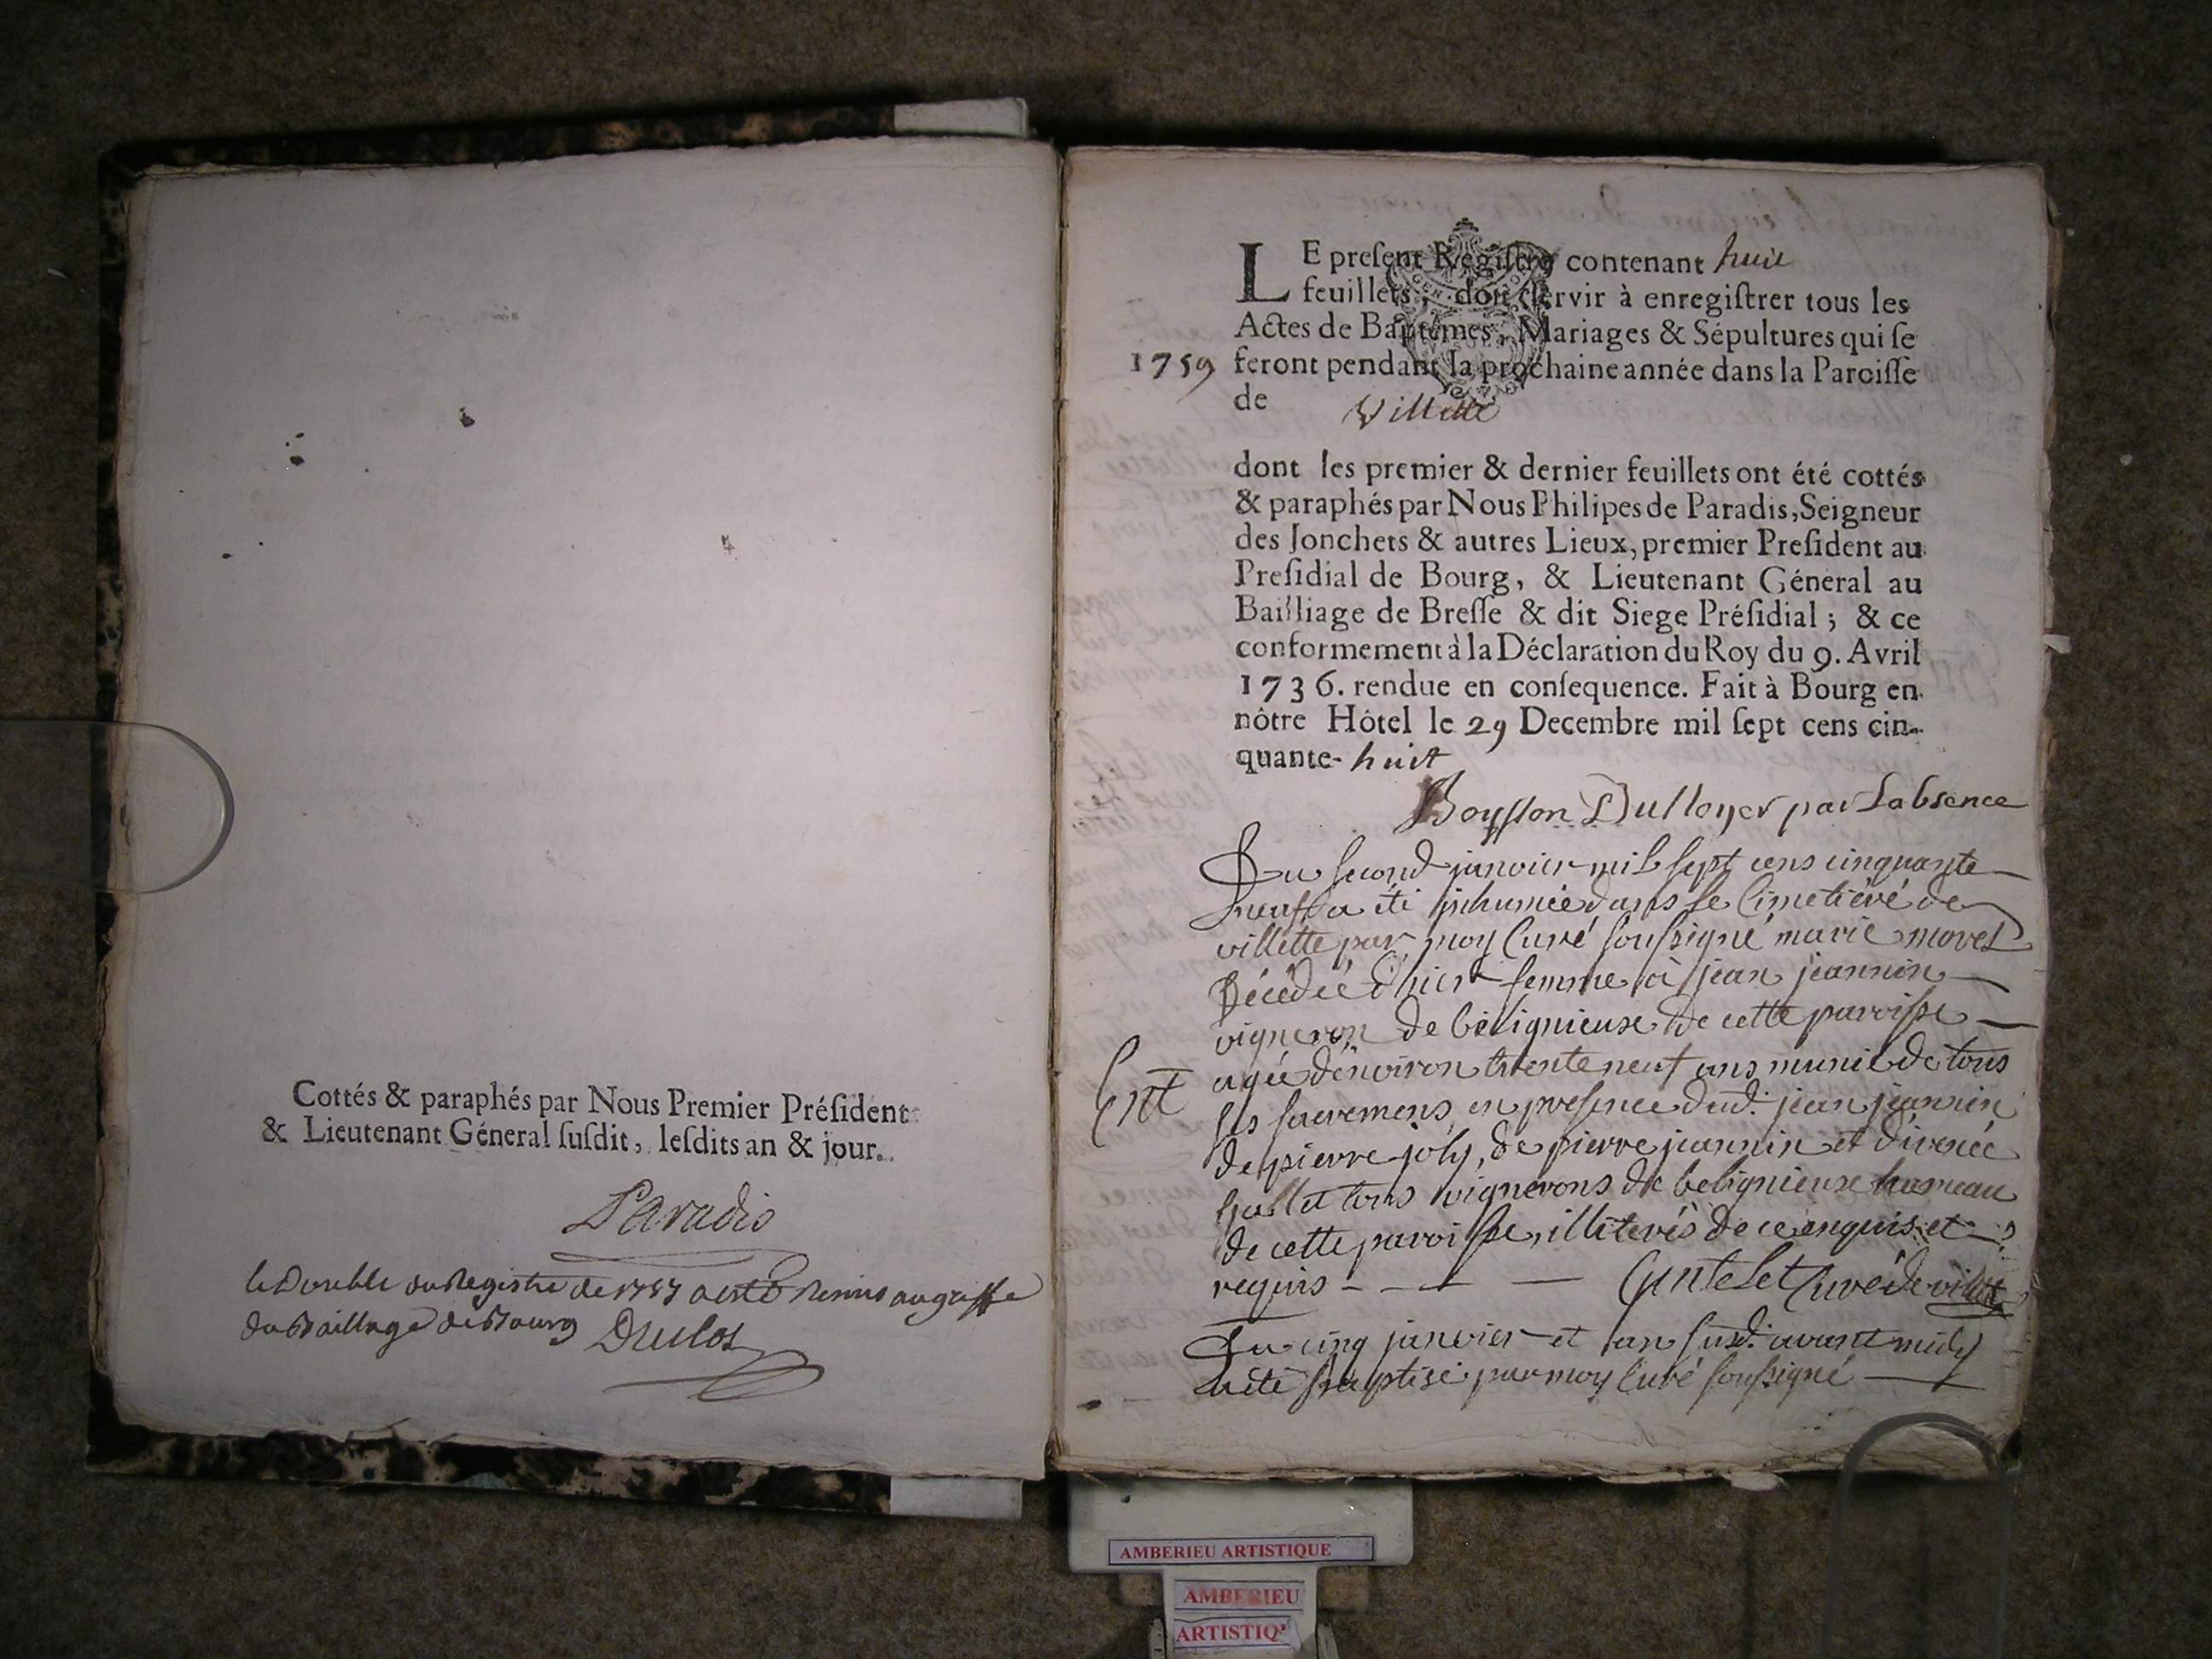 Cottés & paraphés par Nous Premier Préſident
& Lieutenant Géneral ſuſdit, leſdits an & jour.
Paradis
le Double du Registre de 1757 a esté Remis au greffe
du Baillage de Bourg Duclos
LE preſent Regiſtre contenant huit
feuillets, doit ſervir à enregiſtrer tous les
Actes de Baptêmes, Mariages & Sépultures qui ſe
1759 feront pendant la prochaine année dans la Paroiſſe
de Villette
dont les premier & dernier feuillets ont été cottés
& paraphés par Nous Philipes de Paradis, Seigneur
des Jonchets & autres Lieux, premier Preſident au
Preſidial de Bourg, & Lieutenant Géneral au
Bailliage de Breſſe & dit Siege Préſidial ; & ce
conformement à la Déclaration du Roy du 9. Avril
1736. rendue en conſequence. Fait à Bourg en
nôtre Hôtel le 29 Decembre mil ſept cens cin-
quante-huit
par Labsence
Du second janvier mil sept cens cinquante
neuf a été inhumée dans le Cimetiére de
villette par moy Curé soussigné marie morel
Décédée d'hier femme à jean jeannin
vigneron de bélignieuse de cette paroisse
agée d'environ trente neuf ans munie de tous
Ent
ses sacremens en presence dud. jean jeannin
de pierre joly, de pierre jeannin et d'irenée
tous vignerons de belignieuse hameau
de cette paroisse, illiterés de ce enquis et
requis - - - - Cantelet Curé de villette
Du cinq janvier et an susd. avant midy
a été baptisé par moy Curé soussigné
AMBERIEU ARTISTIQUE
AMBERIEU
ARTISTIQ